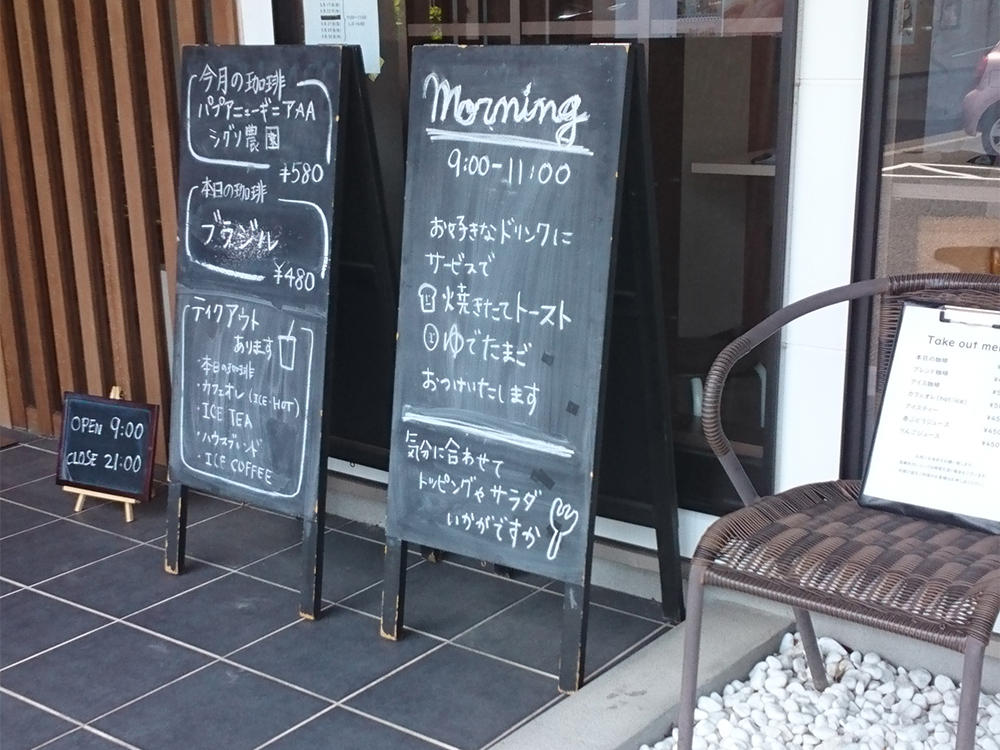 今月の珈琲
パプアニューギニアAA
シグリ農園
¥580
本日の珈琲
ブラジル
¥480
テイクアウト
あります
・本日の珈琲
・カフェオレ(ICE・HOT)
・ICE TEA
・ハウスブレンド
・ICE COFFEE
OPEN 9:00
CLOSE 21:00
Morning
9:00-11:00
お好きなドリンクに
サービスで
焼きたてトースト
ゆでたまご
おつけいたします
気分に合わせて
トッピングやサラダ
いかがですか
Take out me
本日の珈琲
ブレンド珈琲
アイス珈琲
カフェオレ(hot/ice)
アイスティー
赤ぶどうジュース
りんごジュース